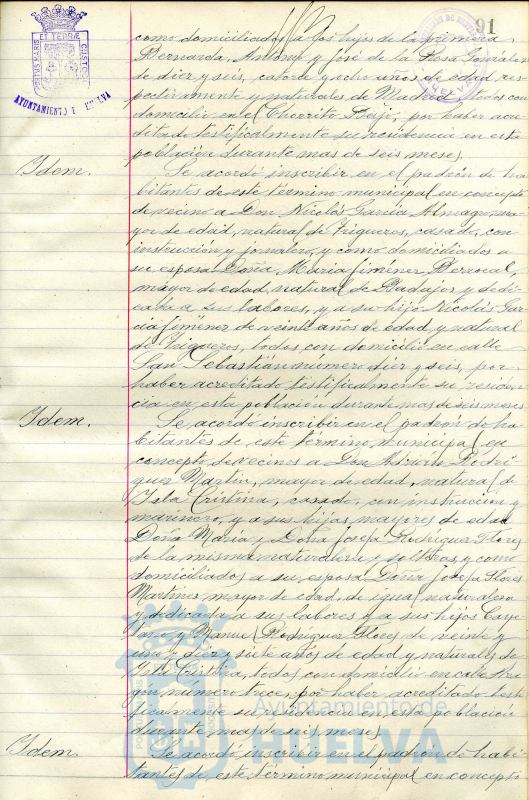 91
PORTUS MARIS ET TERRAE CUSTODIA
AYUNTAMIENTO DE HUELVA
como domiciliados a los hijos de la primera
Bernarda, Antonio y José de la Rosa González
de diez y seis, catorce y ocho años de edad res-
pectivamente y naturales de Madrid, todos con
domicilio en el Chorrito Bajo; por haber acre-
ditado testificalmente su residencia en esta
población durante mas de seis meses.
Idem.
Se acordó inscribir en el padrón de ha-
bitantes de este término municipal en concepto
de vecino a Don Nicolás García Almagro, ma-
yor de edad, natural de Trigueros, casado, con
instrucción y jornalero, y como domiciliados a
su esposa Doña María Jiménez Berrocal,
mayor de edad, natural de y dedi-
cada a sus labores, y a su hijo Nicolás Gar-
cía Jiménez de veinte años de edad y natural
de Trigueros, todos con domicilio en calle
San Sebastián número diez y seis, por
haber acreditado testificalmente su residen-
cia en esta población durante mas de seis meses
Idem.
Se acordó inscribir en el padrón de ha-
bitantes de este término municipal en
concepto de vecinos a Don Rodri-
guez Martin, mayor de edad, natural de
Isla Cristina, casado, con instrucción y
marinero, y a sus hijas mayores de edad
Doña María y Doña Josefa Rodriguez Flores
de la misma naturaleza y solteras, y como
domiciliados a su esposa Doña Josefa Flores
Martinez mayor de edad, de igual naturaleza
y dedicada a sus labores y a sus hijos Caye-
tano y Manuel Rodriguez Flores de veinte y
uno y diez y siete años de edad y naturales de
Isla Cristina, todos con domicilio en calle Ara-
gón número trece, por haber acreditado testi-
ficalmente su residencia en esta población
durante mas de seis meses
Idem.
Se acordó inscribir en el padrón de habi-
tantes de este término municipal en concepto
Ayuntamiento de
HUELVA